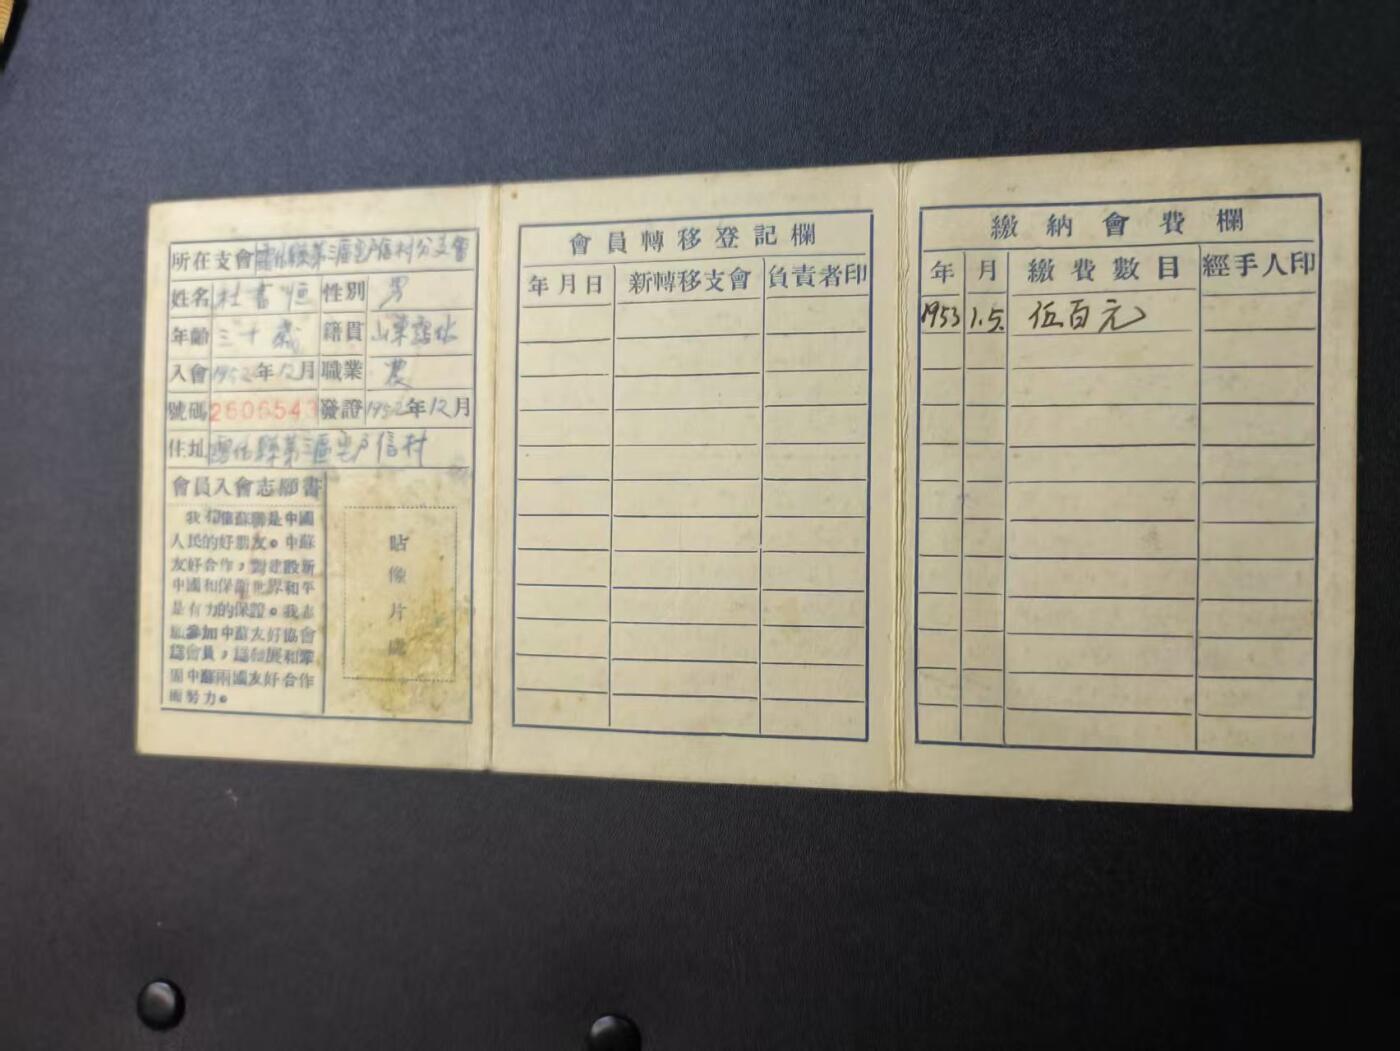 所在支會 霑化縣第三區宅戶信村分支會
姓名 杜書恒 性別 男
年齡 三十歲 籍貫 山東霑化
入會 1952年12月 職業 農
號碼 2606543 發證 1952年12月
住址 霑化縣第三區宅戶信村
會員入會志願書
我 蘇聯是中國
人民的好朋友。中蘇
友好合作，對建設新
中國和保衛世界和平
是有力的保證。我志
願參加中蘇友好協會
為會員，為發展和鞏
固中蘇兩國友好合作
而努力。
貼
像
片
處
會員轉移登記欄
年月日 新轉移支會 負責者印
繳納會費欄
年 月 繳費數目 經手人印
1953 1.5. 伍百元